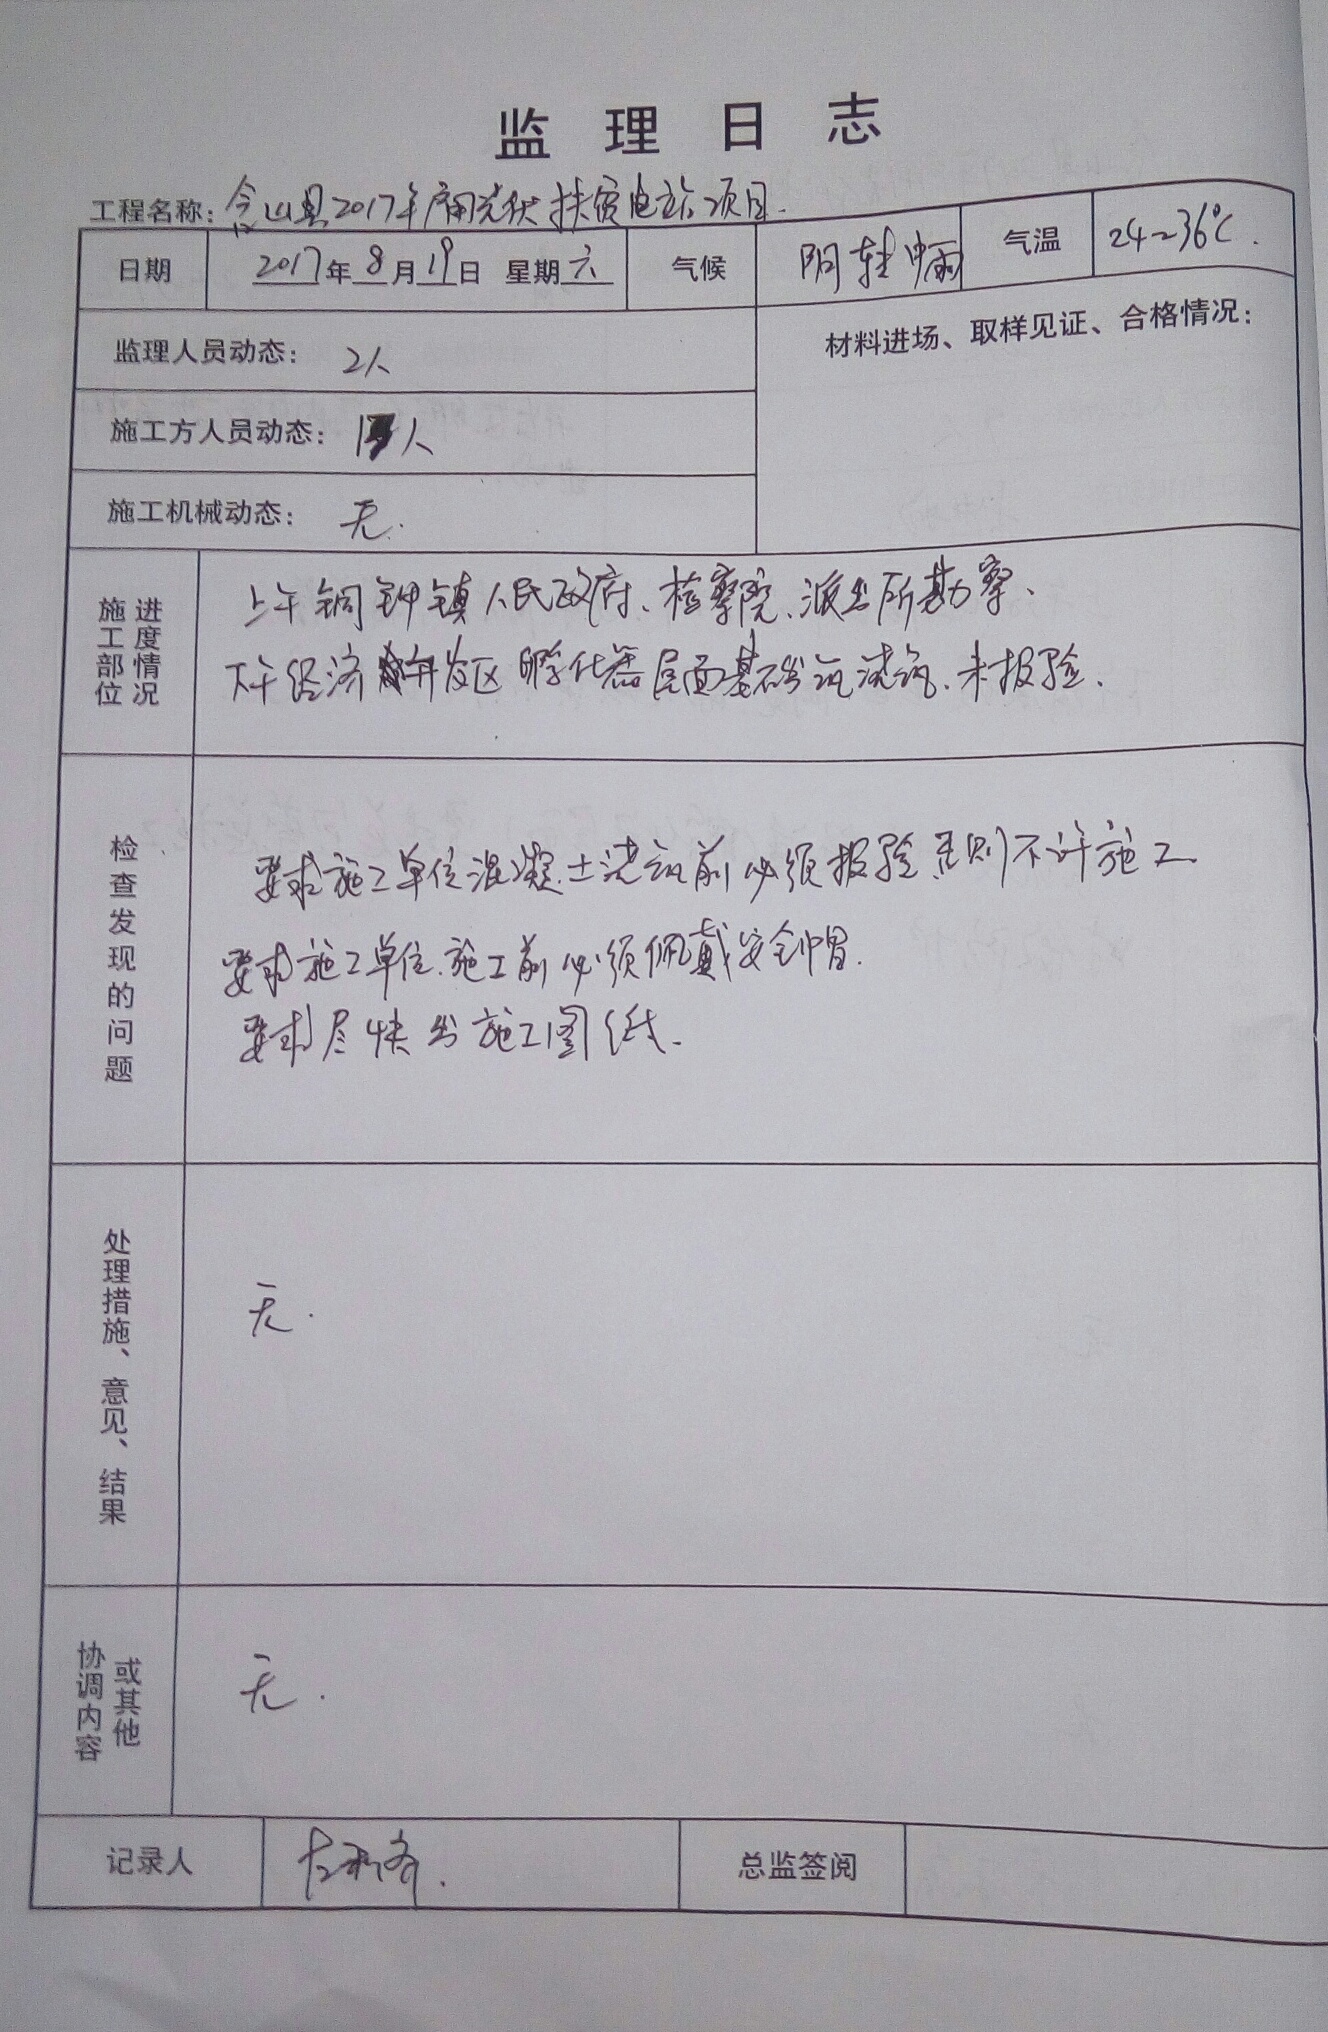 监理日志
工程名称：含山县2017年户用光伏扶贫电站项目.
日期 2017年8月19日 星期六 气候 阴转中雨 气温 24~36℃.
监理人员动态： 2人 材料进场、取样见证、合格情况：
施工方人员动态： 人
施工机械动态： 无.
施工部位 进度情况
上午铜闸镇人民政府、检察院、派出所勘察、
下午经济开发区孵化器屋面基础浇筑、未报验、
检查发现的问题
要求施工单位混凝土浇筑前必须报验否则不许施工
要求施工单位、施工前必须佩戴安全帽.
要求尽快出施工图纸.
处理措施、意见、结果
无.
协调内容 或其他
无.
记录人 总监签阅